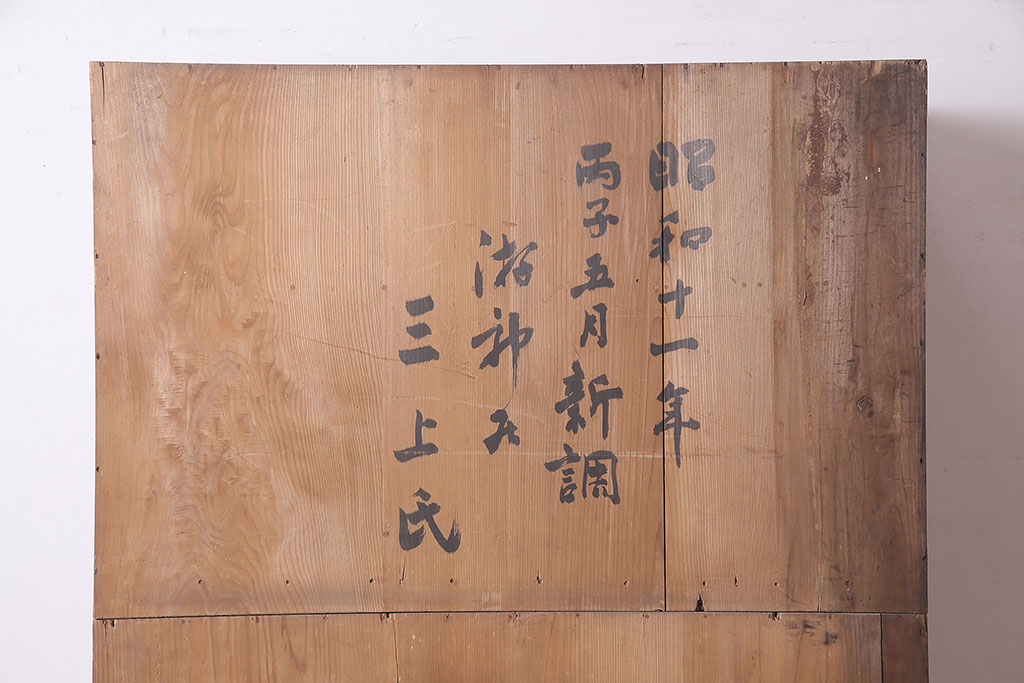 昭和十一年
丙子五月新調
游神氏
三上氏